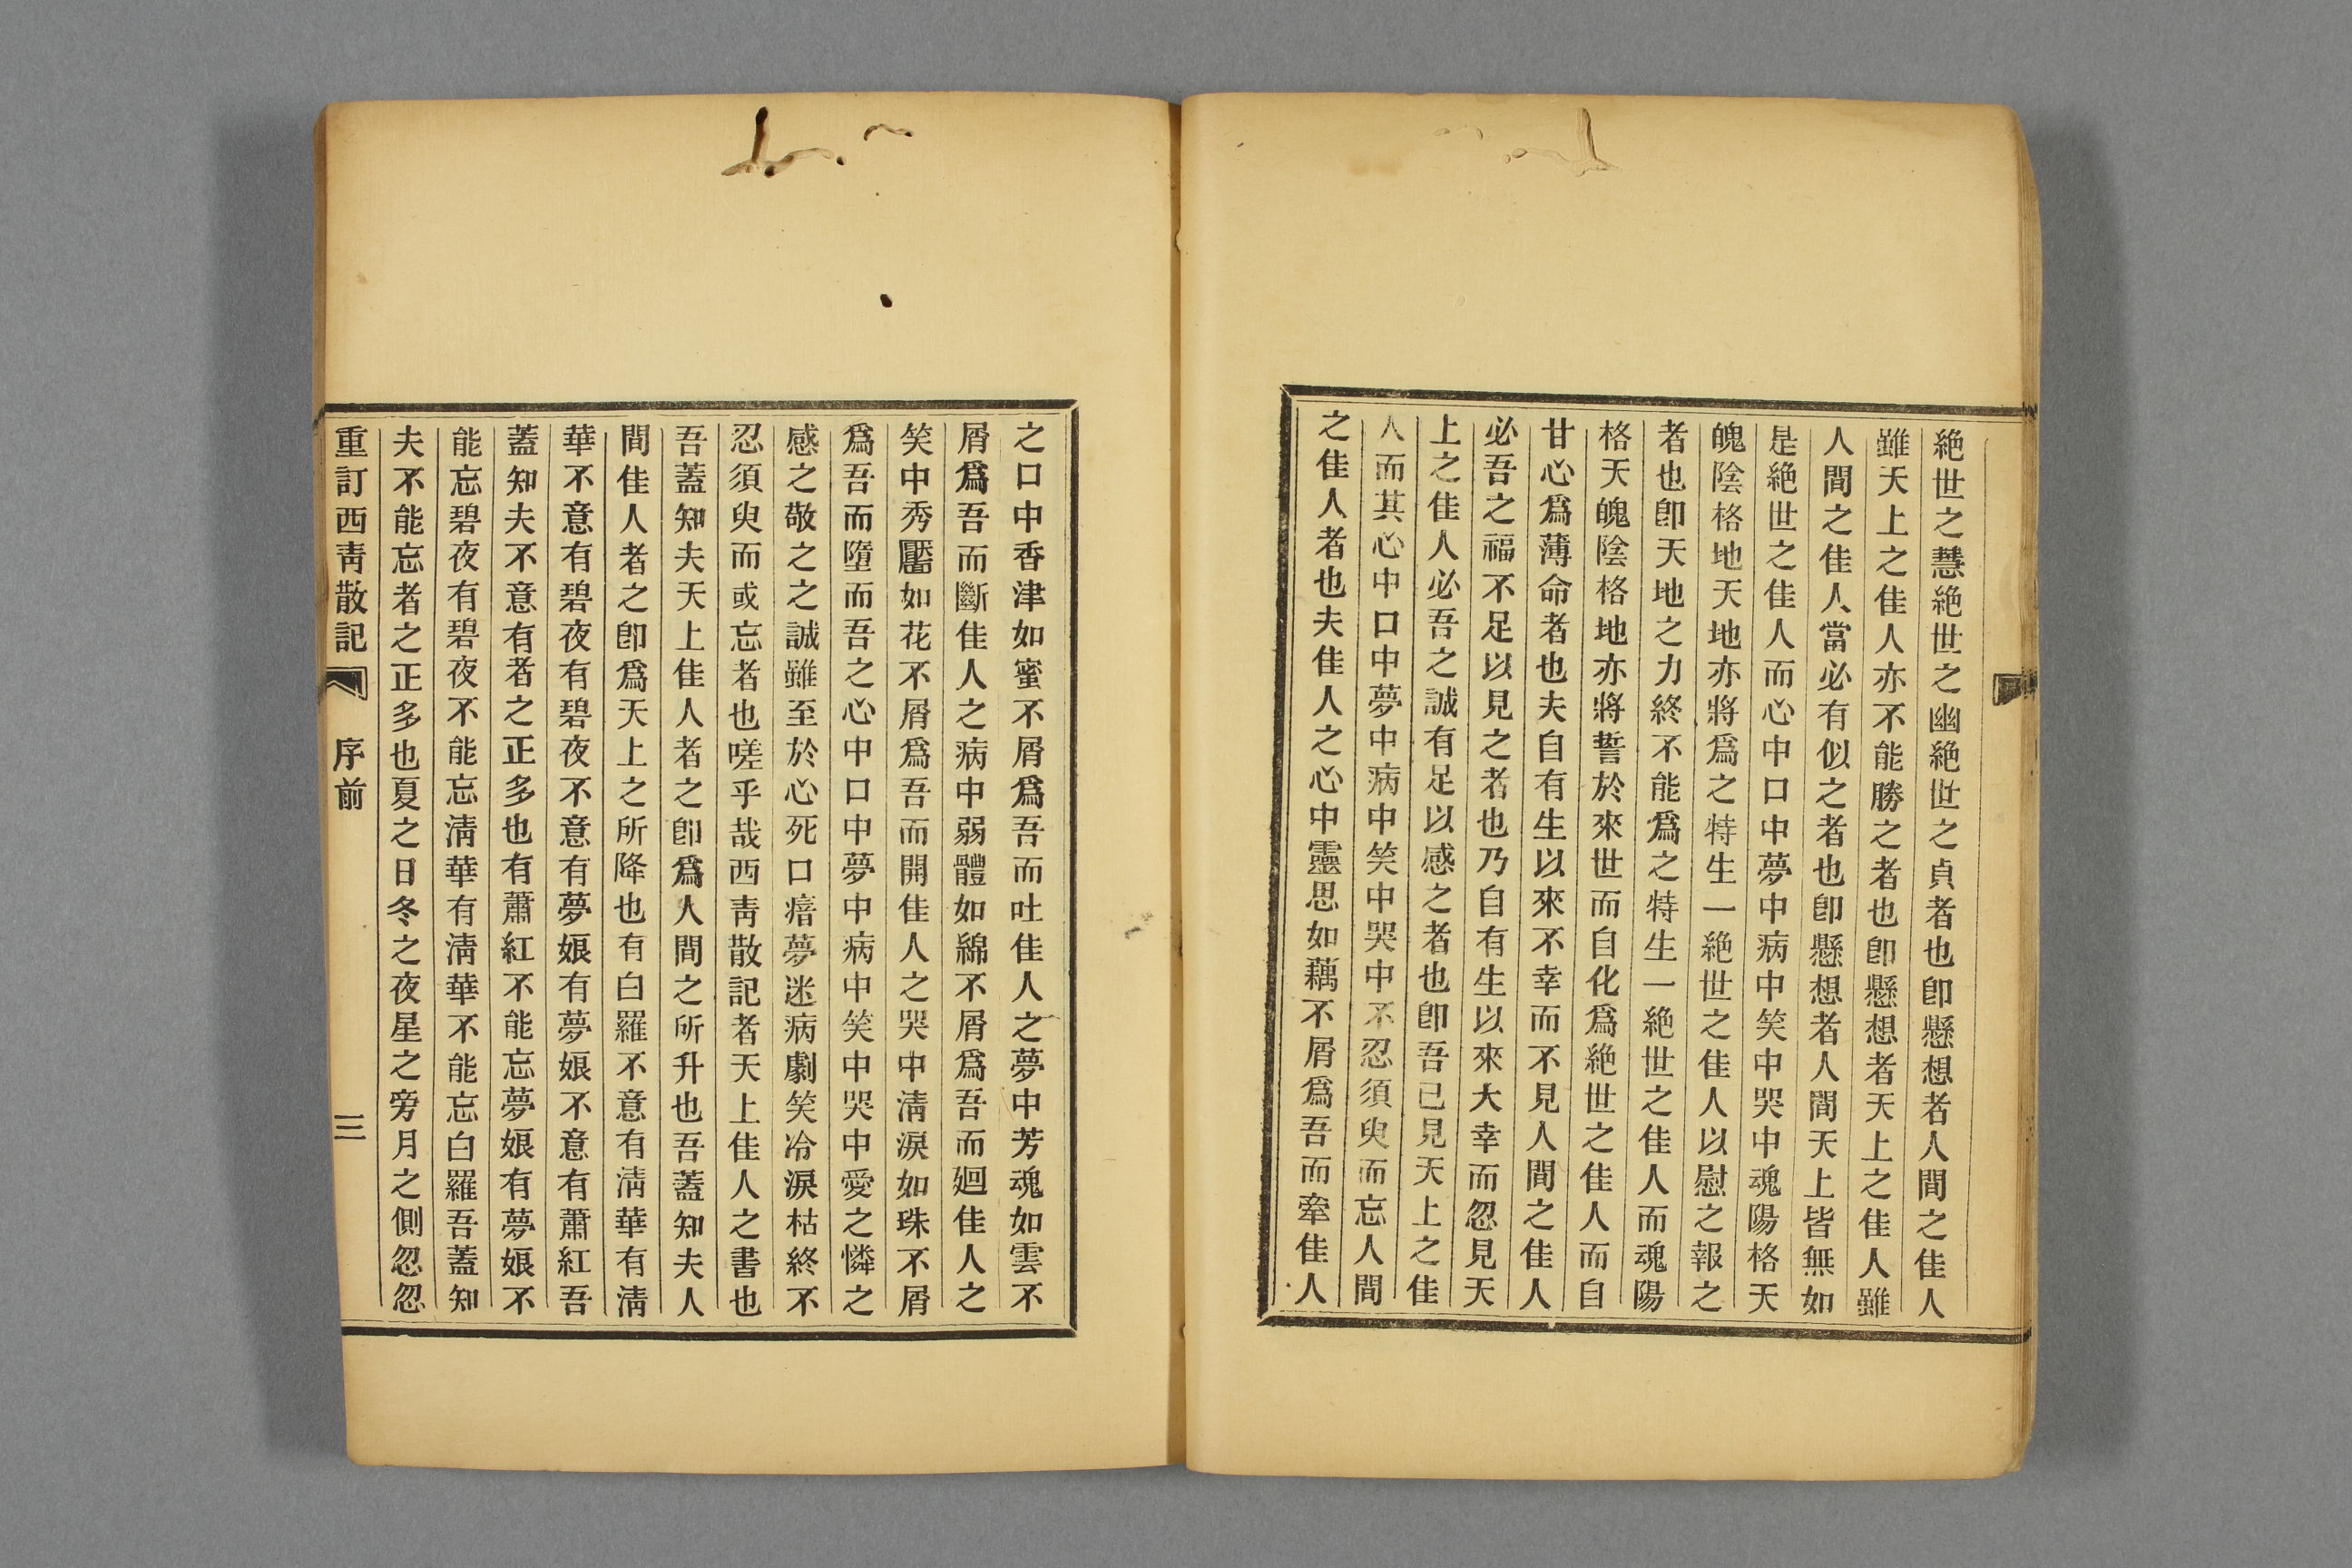 絶世之慧絶世之幽絶世之貞者也卽懸想者人間之佳人
雖天上之佳人亦不能勝之者也卽懸想者天上之佳人雖
人間之佳人當必有似之者也卽懸想者人間天上皆無如
是絶世之佳人而心中口中夢中病中笑中哭中魂陽格天
魄陰格地天地亦將爲之特生一絶世之佳人以慰之報之
者也卽天地之力終不能爲之特生一絶世之佳人而魂陽
格天魄陰格地亦將誓於來世而自化爲絶世之佳人而自
甘心爲薄命者也夫自有生以來不幸而不見人間之佳人
必吾之福不足以見之者也乃自有生以來大幸而忽見天
上之佳人必吾之誠有足以感之者也卽吾已見天上之佳
人而其心中口中夢中病中笑中哭中不忍須臾而忘人間
之佳人者也夫佳人之心中靈思如藕不屑爲吾而牽佳人
之口中香津如蜜不屑爲吾而吐佳人之夢中芳魂如雲不
屑爲吾而斷佳人之病中弱體如綿不屑爲吾而廻佳人之
笑中秀靨如花不屑爲吾而開佳人之哭中淸淚如珠不屑
爲吾而墮而吾之心中口中夢中病中笑中哭中愛之憐之
感之敬之之誠雖至於心死口瘖夢迷病劇笑冷淚枯終不
忍須臾而或忘者也嗟乎哉西靑散記者天上佳人之書也
吾蓋知夫天上佳人者之卽爲人間之所升也吾蓋知夫人
間佳人者之卽爲天上之所降也有白羅不意有淸華有淸
華不意有碧夜有碧夜不意有夢娘有夢娘不意有蕭紅吾
蓋知夫不意有者之正多也有蕭紅不能忘夢娘有夢娘不
能忘碧夜有碧夜不能忘淸華有淸華不能忘白羅吾蓋知
夫不能忘者之正多也夏之日冬之夜星之旁月之側忽忽
重訂西靑散記 序前 三